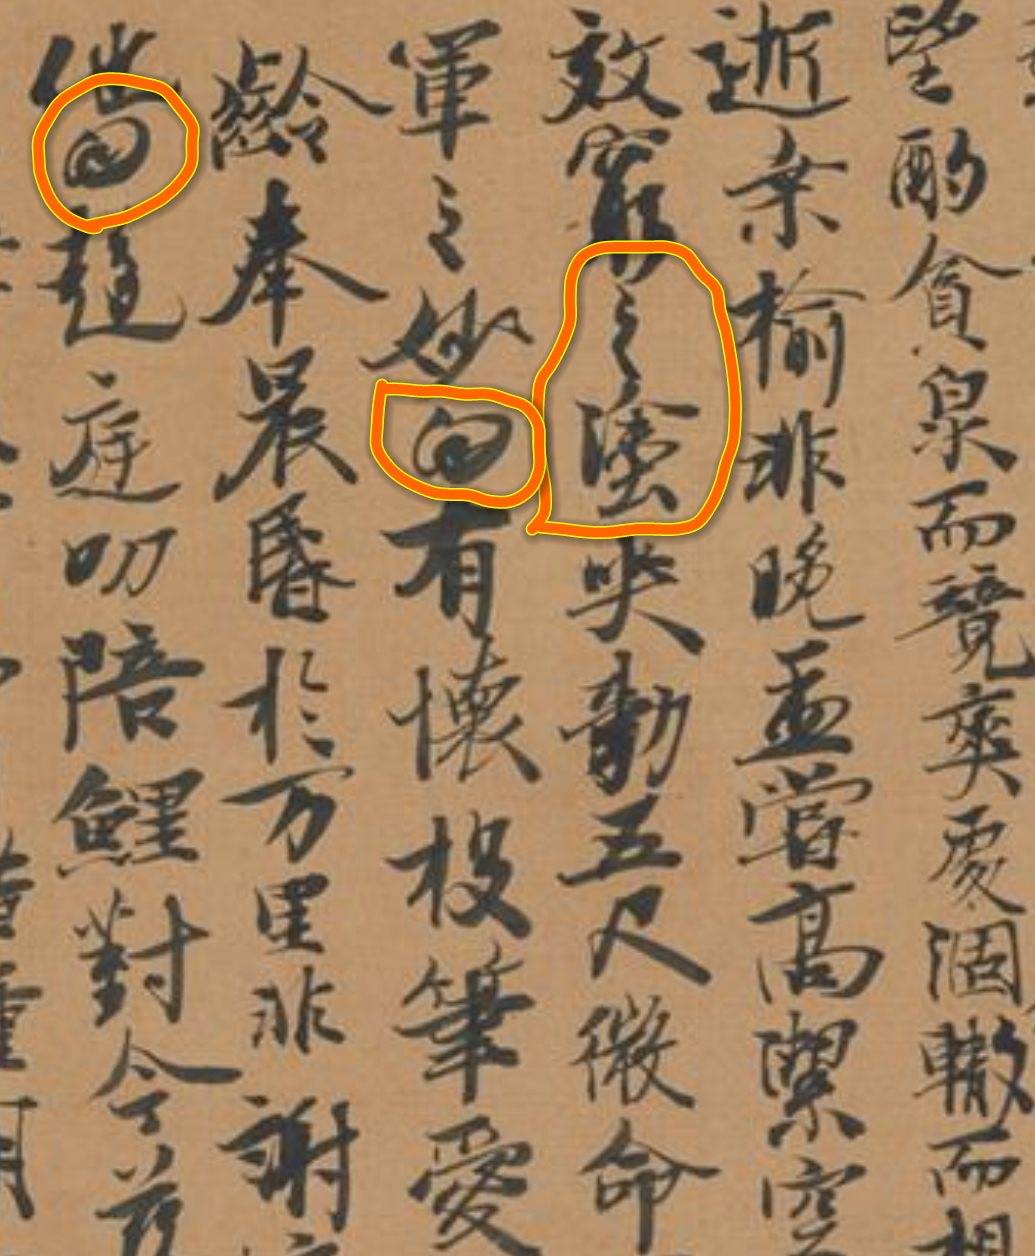 望酌貪泉而覺爽處涸轍而相
逝桒榆非晚孟嘗高潔空
效窮之塗哭勃五尺微命
軍之妙𡆠有懷投筆愛
齡奉晨昬於万里非謝
他𡆠趨庭叨陪鯉對今茲